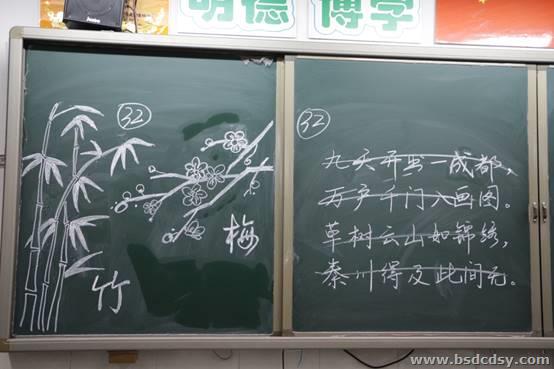 明德 博学
32
竹
梅
32
九天开出一成都，
万户千门入画图。
草树云山如锦绣，
秦川得及此间无。
www.bsdcdsy.com